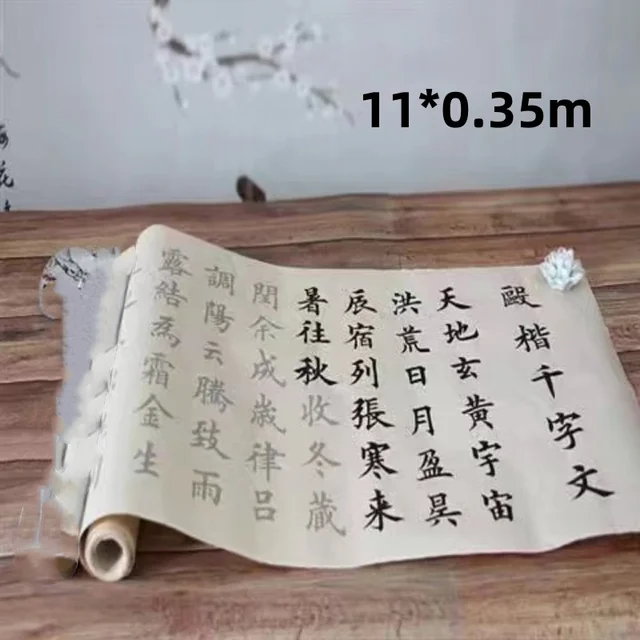 11*0.35m
毆楷千字文
天地玄黄宇宙
洪荒日月盈昃
辰宿列張寒来
暑往秋收冬藏
閏余成歲律吕
調陽云騰致雨
露結為霜金生